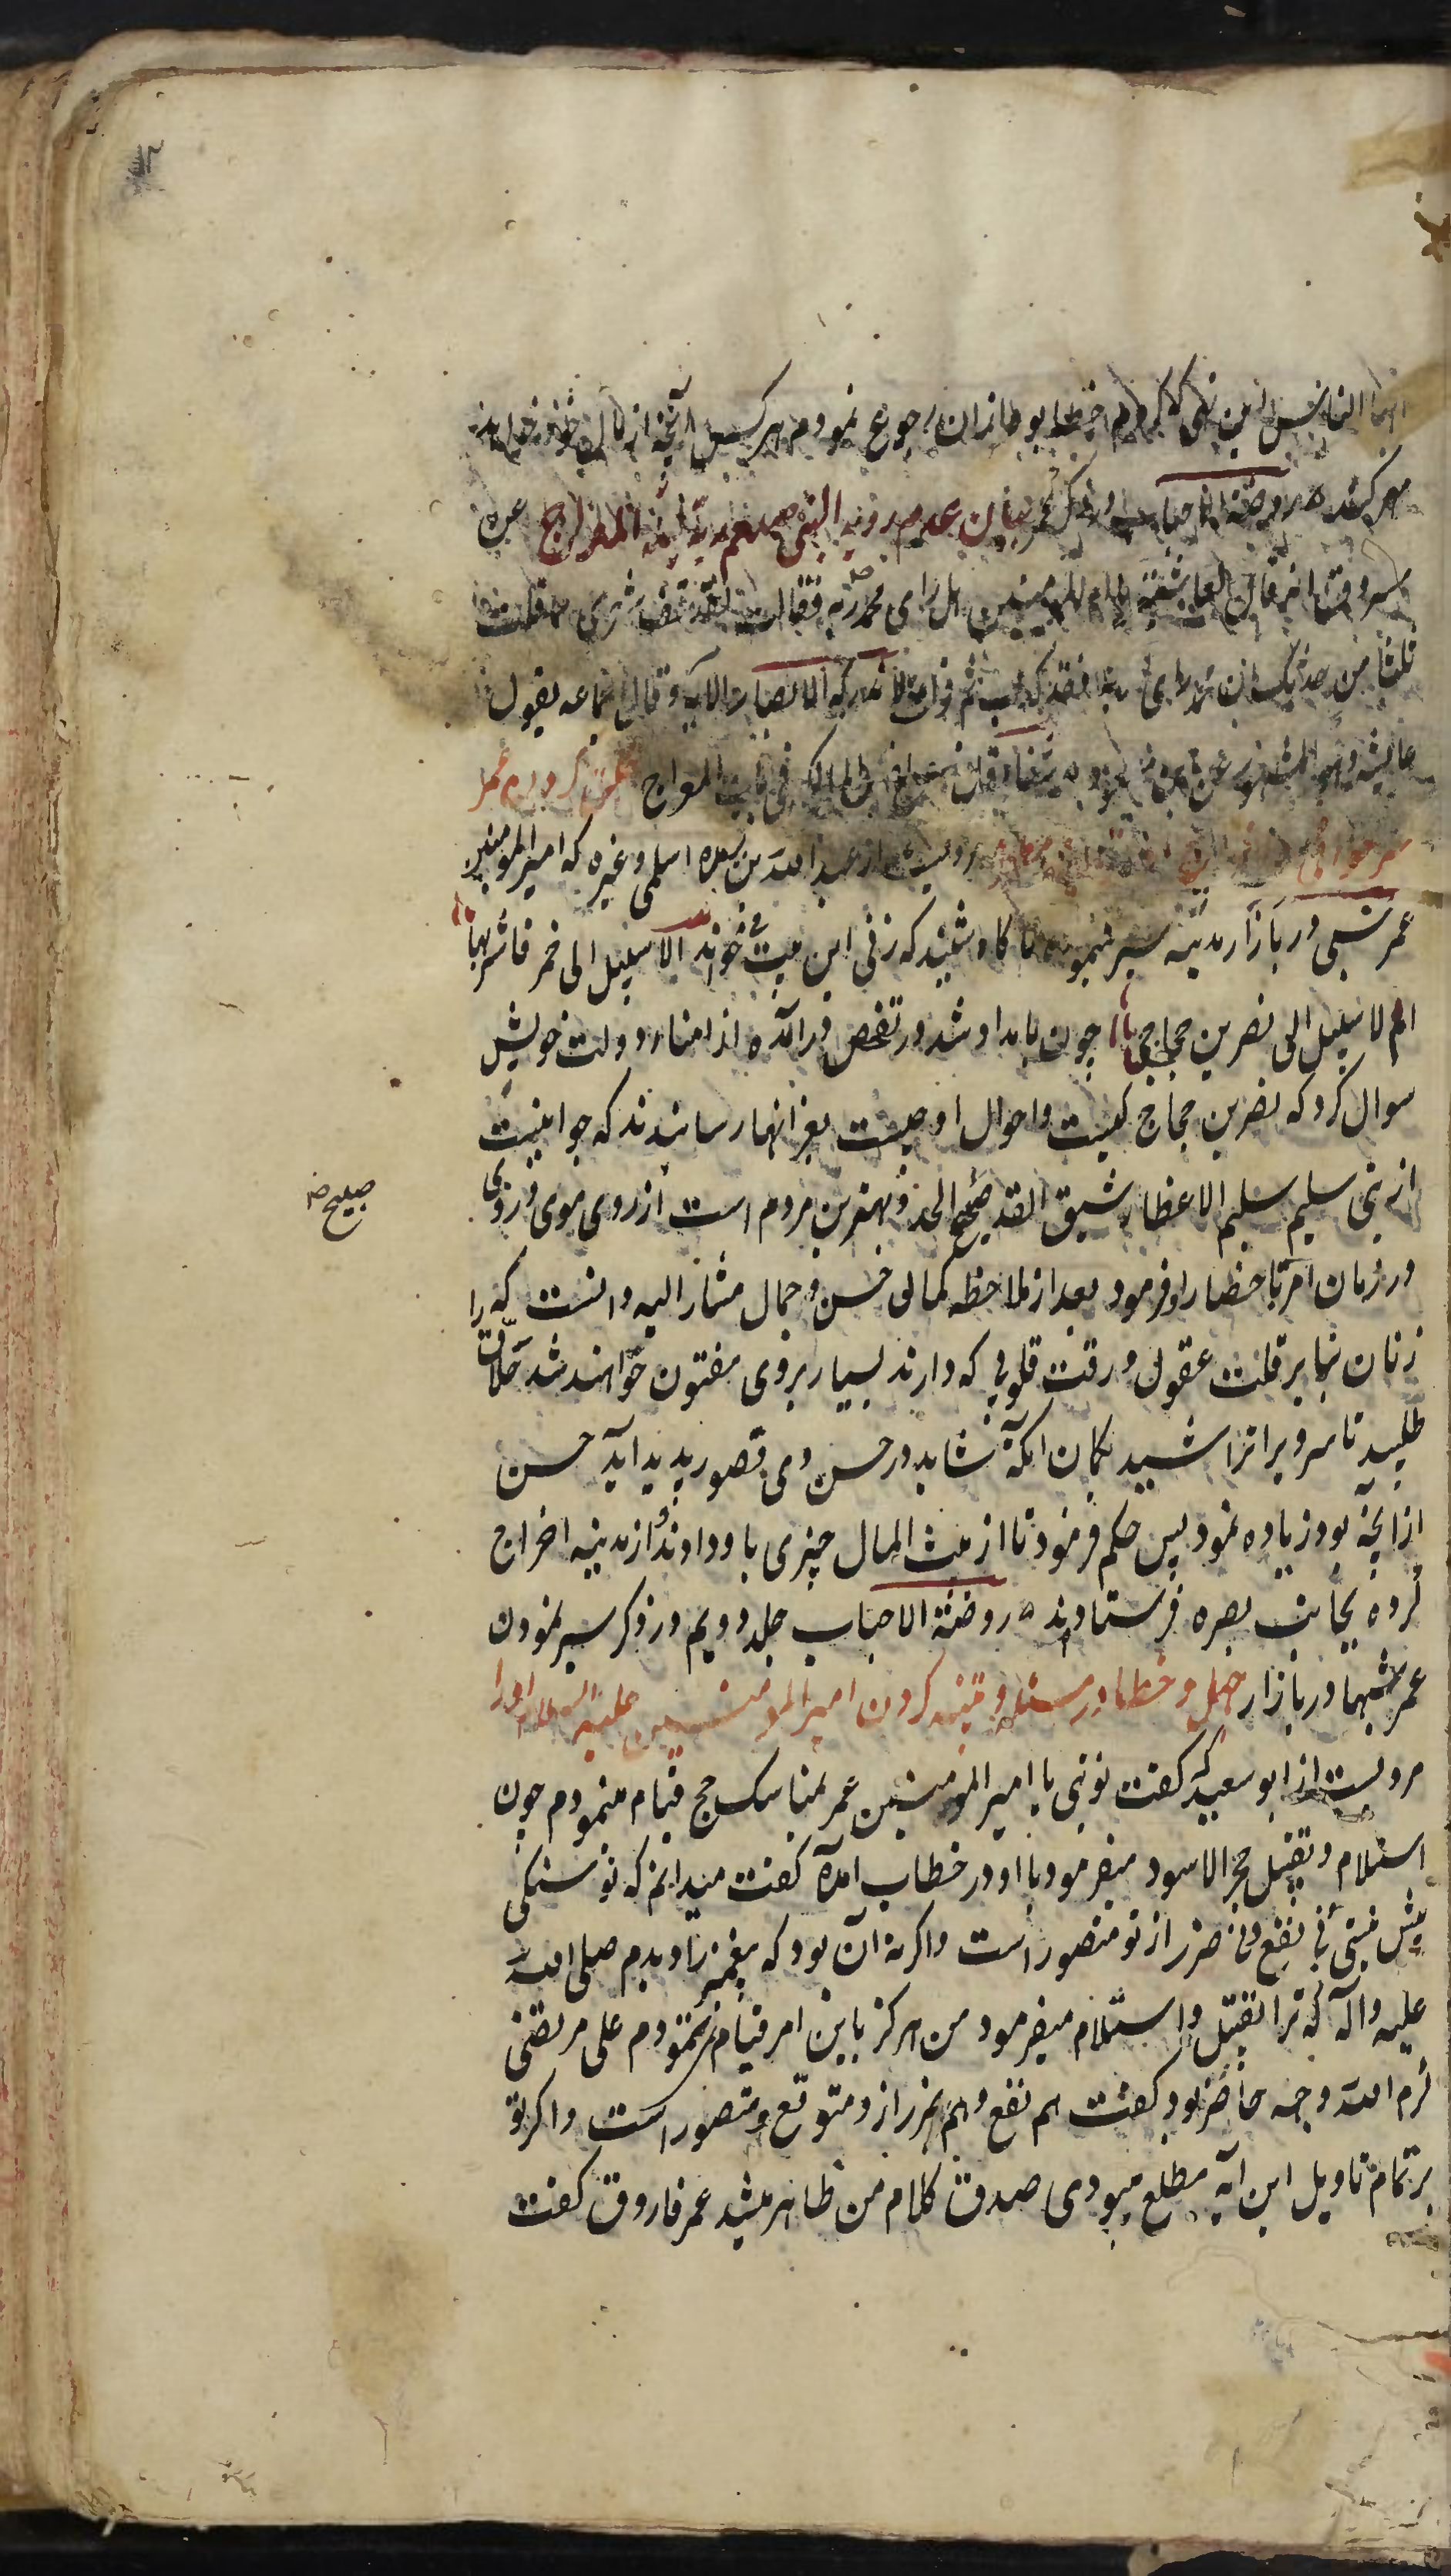 ایها الناس این نهی که کردم خطا بود از آن رجوع نمودم هر کس آنچه از مال خود خواهد
مهر کند روضة الاحباب در ذکر عمر بیان عدم رویة النبی صلعم ربه لیلة المعراج عن
مسروق انه قال لعایشة یا ام المومنین هل رای محمد ربه فقالت لقد قف شعری مما قلت
ثلثا من حدثک ان محمدا رای ربه فقد کذب ثم قرات لا تدرکه الابصار الایه و قال جماعه بقول
عایشه وهو المشهور عن ابن مسعود فی باب المعراج
رویست از عبد الله بن بریده اسلمی و غیره که امیر المومنین
عمر شبی در بازار مدینه سیر مینمود ناکاه شنید که زنی این بیت می خواند الا سبیل الی خمر فاشربها
ام لا سبیل الی نصر بن حجاج چون بامداد شد در تفحص درآمده از امناء دولت خویش
سوال کرد که نصر بن حجاج کیست و احوال او چیست بعز انها رسانیدند که جوانیست
از بنی سلیم سلیم الاعضا رشیق القد صبیح الخد و بهترین مردم است از روی موی و روی
صبیح صح
در زمان امر باحضار او فرمود بعد از ملاحظه کمال حسن و جمال مشار الیه دانست که
زنان بنا بر قلت عقول و رقت قلوبی که دارند بسیار بروی مفتون خواهند شد حلاق را
طلبید تا سر ویرا تراشید بکمان انکه شاید در حسن وی قصور پدید آید حسن
از انچه بود زیاده نمود پس حکم فرمود تا از بیت المال چیزی باو دادند و از مدینه اخراج
کرده بجانب بصره فرستادند روضة الاحباب جلد دویم در ذکر سیر نمودن
عمر شبها در بازار جهل و خطا در مسئله و تنبیه کردن امیر المومنین علیه السلام او را
مرویست از ابو سعید که کفت نوبتی با امیر المومنین عمر بمناسک حج قیام مینمودم چون
استلام و تقبیل حجر الاسود میفرمود با او در خطاب آمده کفت میدانم که تو سنکی
بیش نیستی نی نفع و نی ضرر از تو متصور است و اگر نه آن بود که پیغمبر را دیدم صلی الله
علیه و اله که ترا تقبیل و استلام میفرمود من هرکز باین امر قیام نمی نمودم علی مرتضی
کرم الله وجهه حاضر بود کفت هم نفع و هم ضرر ازو متوقع و متصور است و اکر تو
بر تمام تاویل این آیه مطلع میبودی صدق کلام من ظاهر میشد عمر فاروق کفت